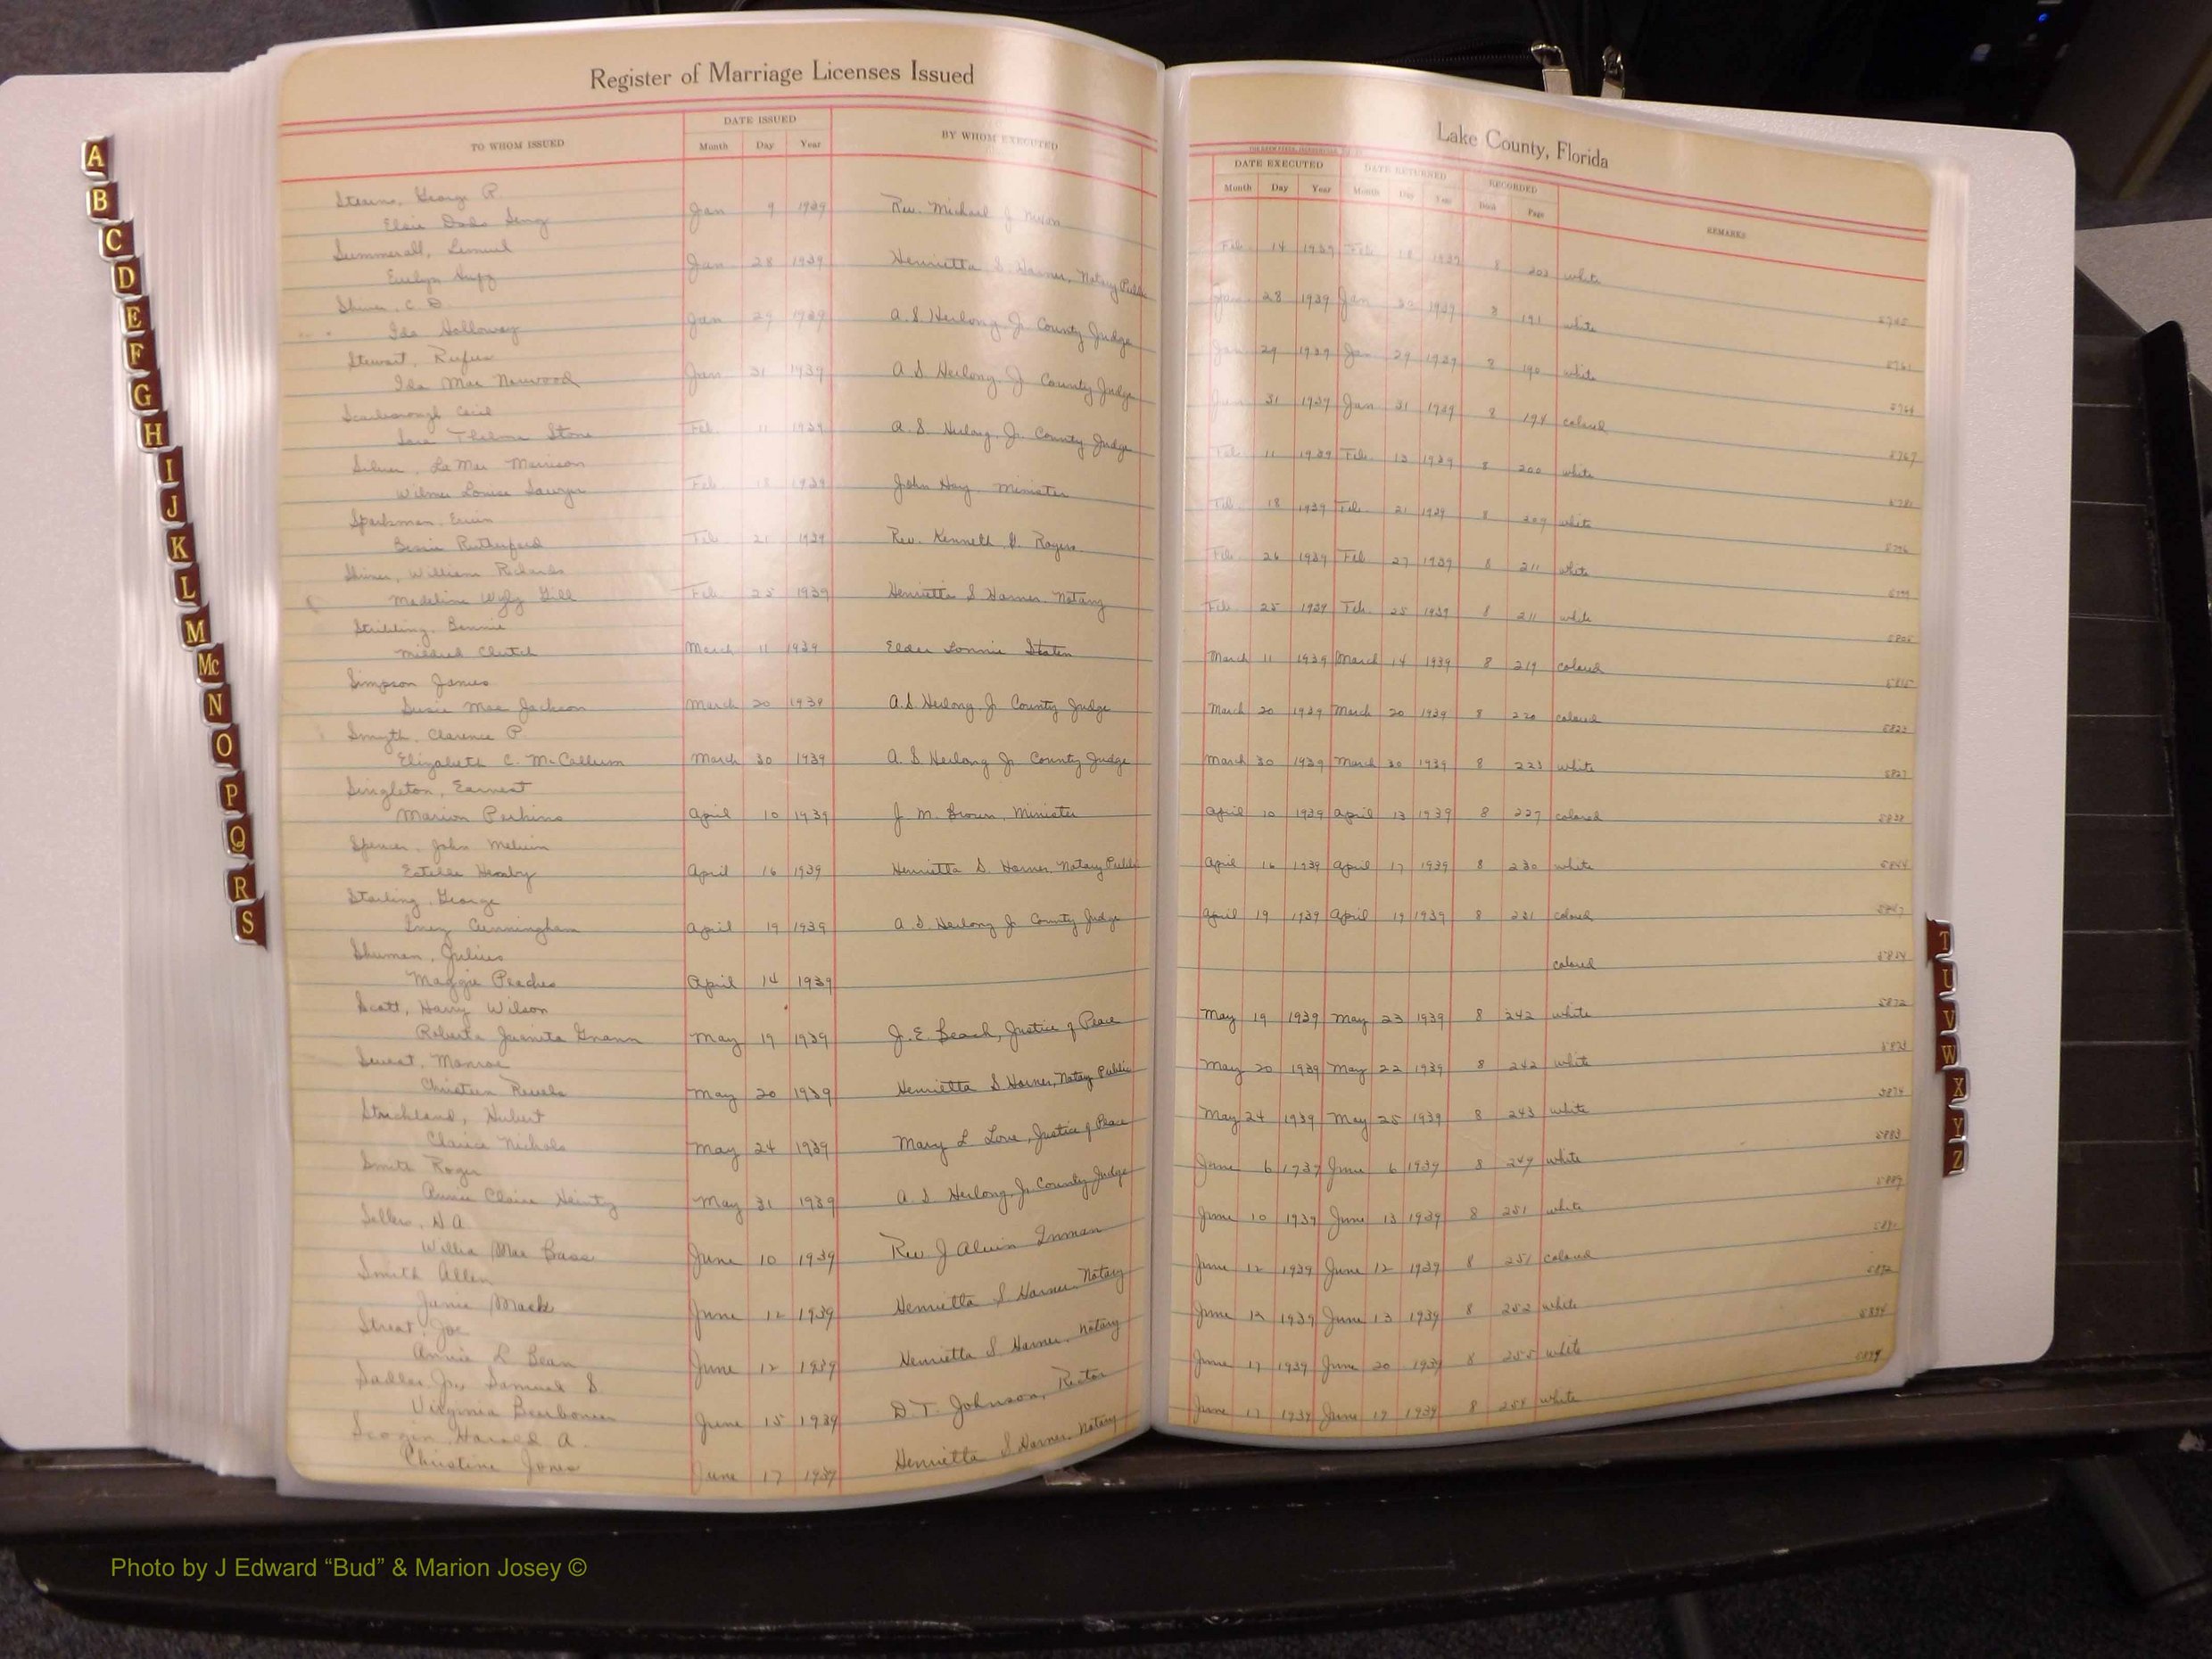 Register of Marriage Licenses Issued
TO WHOM ISSUED
DATE ISSUED
Month Day Year
BY WHOM EXECUTED
Stearns, George P.
Elsie Dodo Jan 9 1939 Rev. Michael J Nixon
Summerall, Lemuel
Evelyn Jan 28 1939 Henrietta S. Harner, Notary Public
C. D.
Ida Holloway Jan 29 1939 A. S. Herlong Jr County Judge
Stewart, Rufus
Ida Mae Norwood Jan 31 1939 A S Herlong Jr County Judge
Scarborough Cecil
Sara Thelma Stone Feb 11 1939 A. S. Herlong, Jr. County Judge
La Mar Morrison
Wilma Louise Sawyer Feb 18 1939 John Hay Minister
Sparkman,
Bessie Rutherford Feb 21 1939 Rev. Kenneth Rogers
Shiner, William Richards
Madeline Wyly Gill Feb 25 1939 Henrietta S Harner Notary
Stribling, Bennie
Mildred March 11 1939 Elder Lonnie Staten
Simpson James
Susie Mae Jackson March 20 1939 A. S. Herlong, Jr County Judge
Smyth, Clarence P.
Elizabeth C. McCollum March 30 1939 A. S Herlong Jr County Judge
Singleton, Earnest
Marion Perkins April 10 1939 J. M. Brown, Minister
Spencer, John Melvin
Estelle April 16 1939 Henrietta S. Harner, Notary Public
Starling, George
Inez Cunningham April 19 1939 A. S. Herlong Jr County Judge
Shuman, Julius
Maggie Peeples April 14 1939
Scott, Harry Wilson
Roberta Juanita May 19 1939 J. E. Beach, Justice of Peace
Sweat, Monroe
Christeen Revels May 20 1939 Henrietta S Harner, Notary Public
Strickland, Hubert
Clarice Nichols May 24 1939 Mary L Love, Justice of Peace
Smith Roger
Annie Claire Heintz May 31 1939 A S Herlong, Jr County Judge
Sellers, H A
Willia Mae Bass June 10 1939 Rev J Alvin Inman
Smith Allen
Junie Mack June 12 1939 Henrietta S Harner, Notary
Streat, Joe
Annie L Bean June 12 1939 Henrietta S Harner, Notary
Sadler Jr., Samuel S.
Virginia June 15 1939 D. T. Johnson, Rector
Scogin Harold A.
Christine Jones June 17 1939 Henrietta S Harner, Notary
Lake County, Florida
DATE EXECUTED DATE RETURNED RECORDED
Month Day Year Month Day Year Book Page REMARKS
Feb 14 1939 Feb 18 1939 8 203 white
Jan 28 1939 Jan 1939 8 191 white
Jan 29 1939 Jan 29 1939 8 190 white 5761
Jan 31 1939 Jan 31 1939 8 194 colored 5764
Feb 11 1939 Feb 13 1939 8 200 white 5767
Feb 18 1939 Feb 21 1939 8 209 white 5781
Feb 26 1939 Feb 27 1939 8 211 white
Feb 25 1939 Feb 25 1939 8 211 white 5799
March 11 1939 March 14 1939 8 219 colored 5805
March 20 1939 March 20 1939 8 220 colored 5815
March 30 1939 March 30 1939 8 223 white 5823
April 10 1939 April 13 1939 8 227 colored 5827
April 16 1939 April 17 1939 8 230 white 5838
April 19 1939 April 19 1939 8 231 colored 5844
colored 5847
May 19 1939 May 23 1939 8 242 white 5854
May 20 1939 May 22 1939 8 242 white 5872
May 24 1939 May 25 1939 8 243 white 5873
June 6 1939 June 6 1939 8 249 white 5874
June 10 1939 June 13 1939 8 251 white 5883
June 12 1939 June 12 1939 8 251 colored 5889
June 1939 June 13 1939 8 252 white
June 17 1939 June 20 1939 8 255 white 5892
June 17 1939 June 19 1939 8 white 5894
5899
A
B
C
D
E
F
G
H
I
J
K
L
M
Mc
N
O
P
Q
R
S
T
U
V
W
X
Y
Z
Photo by J Edward “Bud” & Marion Josey ©